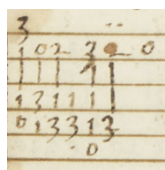 3
02 3 0
1 3 1 1 1
0 1 3 3 1 3
0